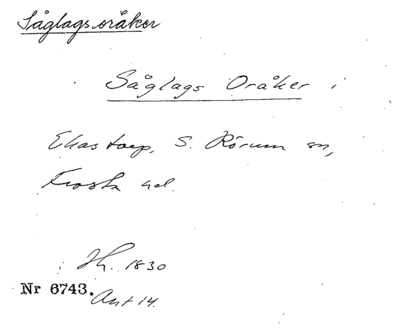 Såglagsoråker
Såglags Oråker i
Ekastorp, S. Rörum sn,
Frosta hd.
Jh. 1830
Nr 6743.
Ant 14.